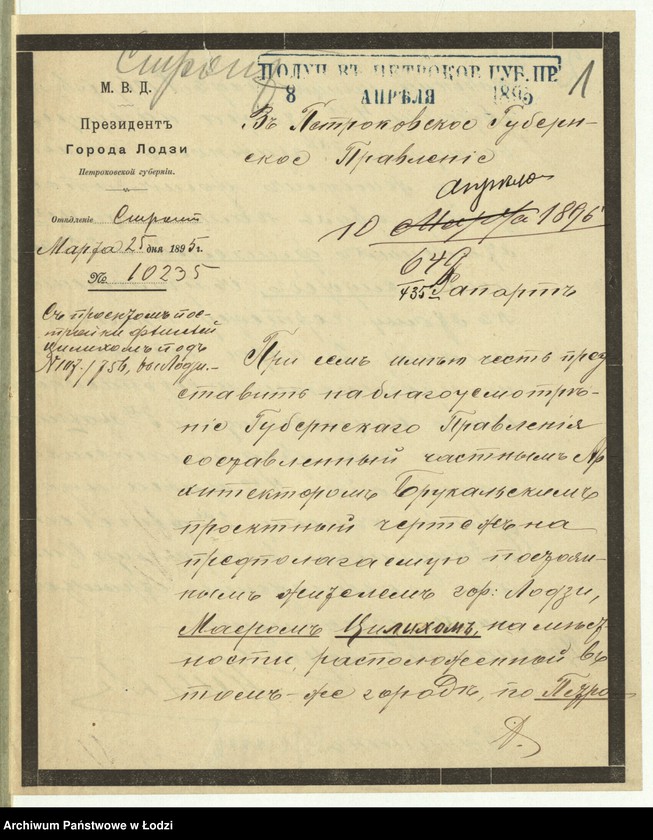 Строит
ПОЛУЧ. ВЪ ПЕТРОКОВ. ГУБ. ПР
8 АПРѢЛЯ 1895
1
М. В. Д.
Президентъ
Города Лодзи
Петроковской губерніи.
Отдѣленіе Строит
Марта 25 дня 1895 г.
№ 10235
Съ проектомъ пос-
тройки
Цилихомъ подъ
въ Лодзи.-
Въ Петроковское Губерн-
ское Правленіе
апрѣля
10 Марта 1896
649
435
Рапортъ
При семъ имѣю честь пред
ставить на благоусмотрѣ-
ніе Губернскаго Правленія
составленный частнымъ Ар
хитекторомъ Брукальскимъ
проектный чертежъ на
предполагаемую постоян-
нымъ жителемъ гор: Лодзи,
Маеромъ Цилихомъ, на мѣст-
ности, расположенной въ
томъ-же городѣ, по Петро